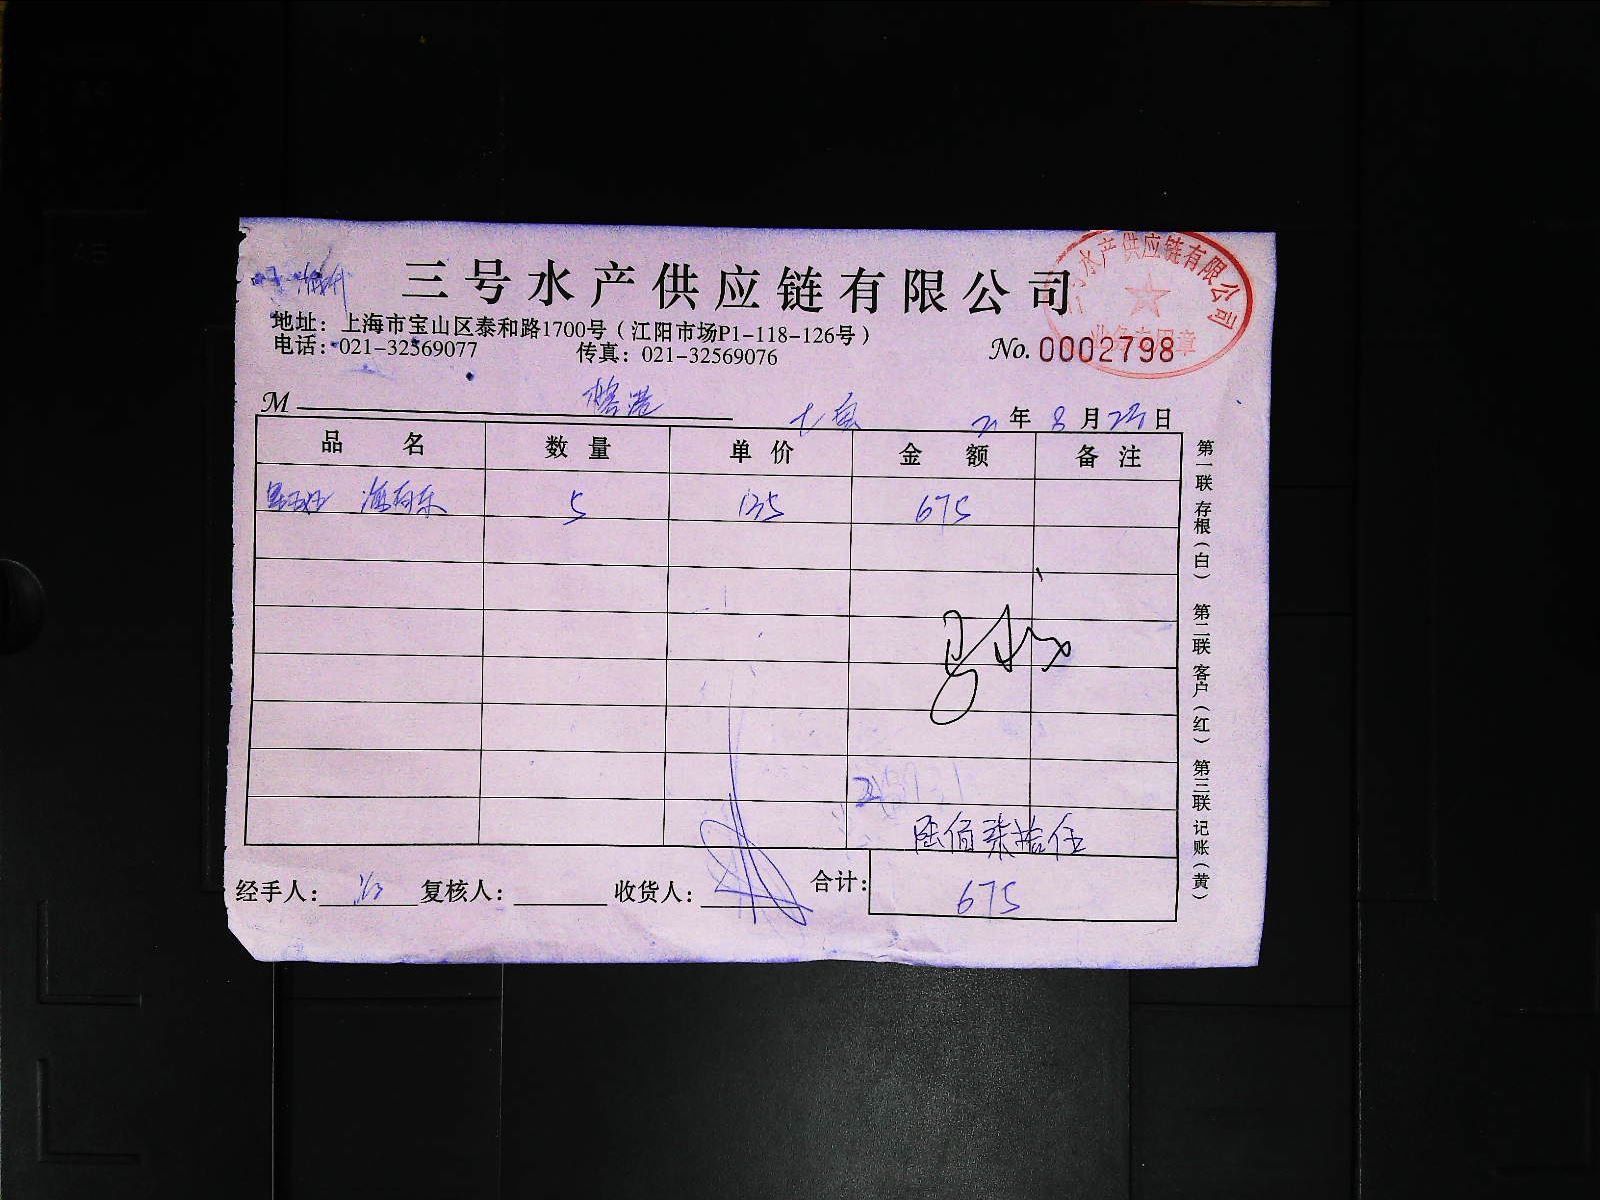 三号水产供应链有限公司
水产供应链有限公司
业务专用章
地址：上海市宝山区泰和路1700号（江阳市场P1-118-126号）
电话：021-32569077 传真：021-32569076
No. 0002798
M 榕港
21年8月25日
品名 数量 单价 金额 备注
5 135 675
陆佰柒拾伍
经手人： 复核人： 收货人： 合计：675
第一联 存根（白） 第二联 客户（红） 第三联 记账（黄）